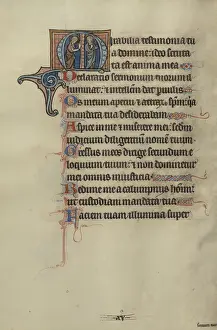 irabilia testimonia tu
a domine: ideo scruta
ta est anima mea
Declaratio sermonum tuorum il
luminat: et intellectum dat paruulis
Os meum aperui et attraxi spm: qa
mandata tua desiderabam
Aspice in me et miserere mei: scdm
iudicium diligentium nomen tuum
Gressus meos dirige secundum e
loquium tuum: et non dominetur
mei omnis iniusticia
Redime me a calumpniis homin:
ut custodiam mandata tua
Faciem tuam illumina super